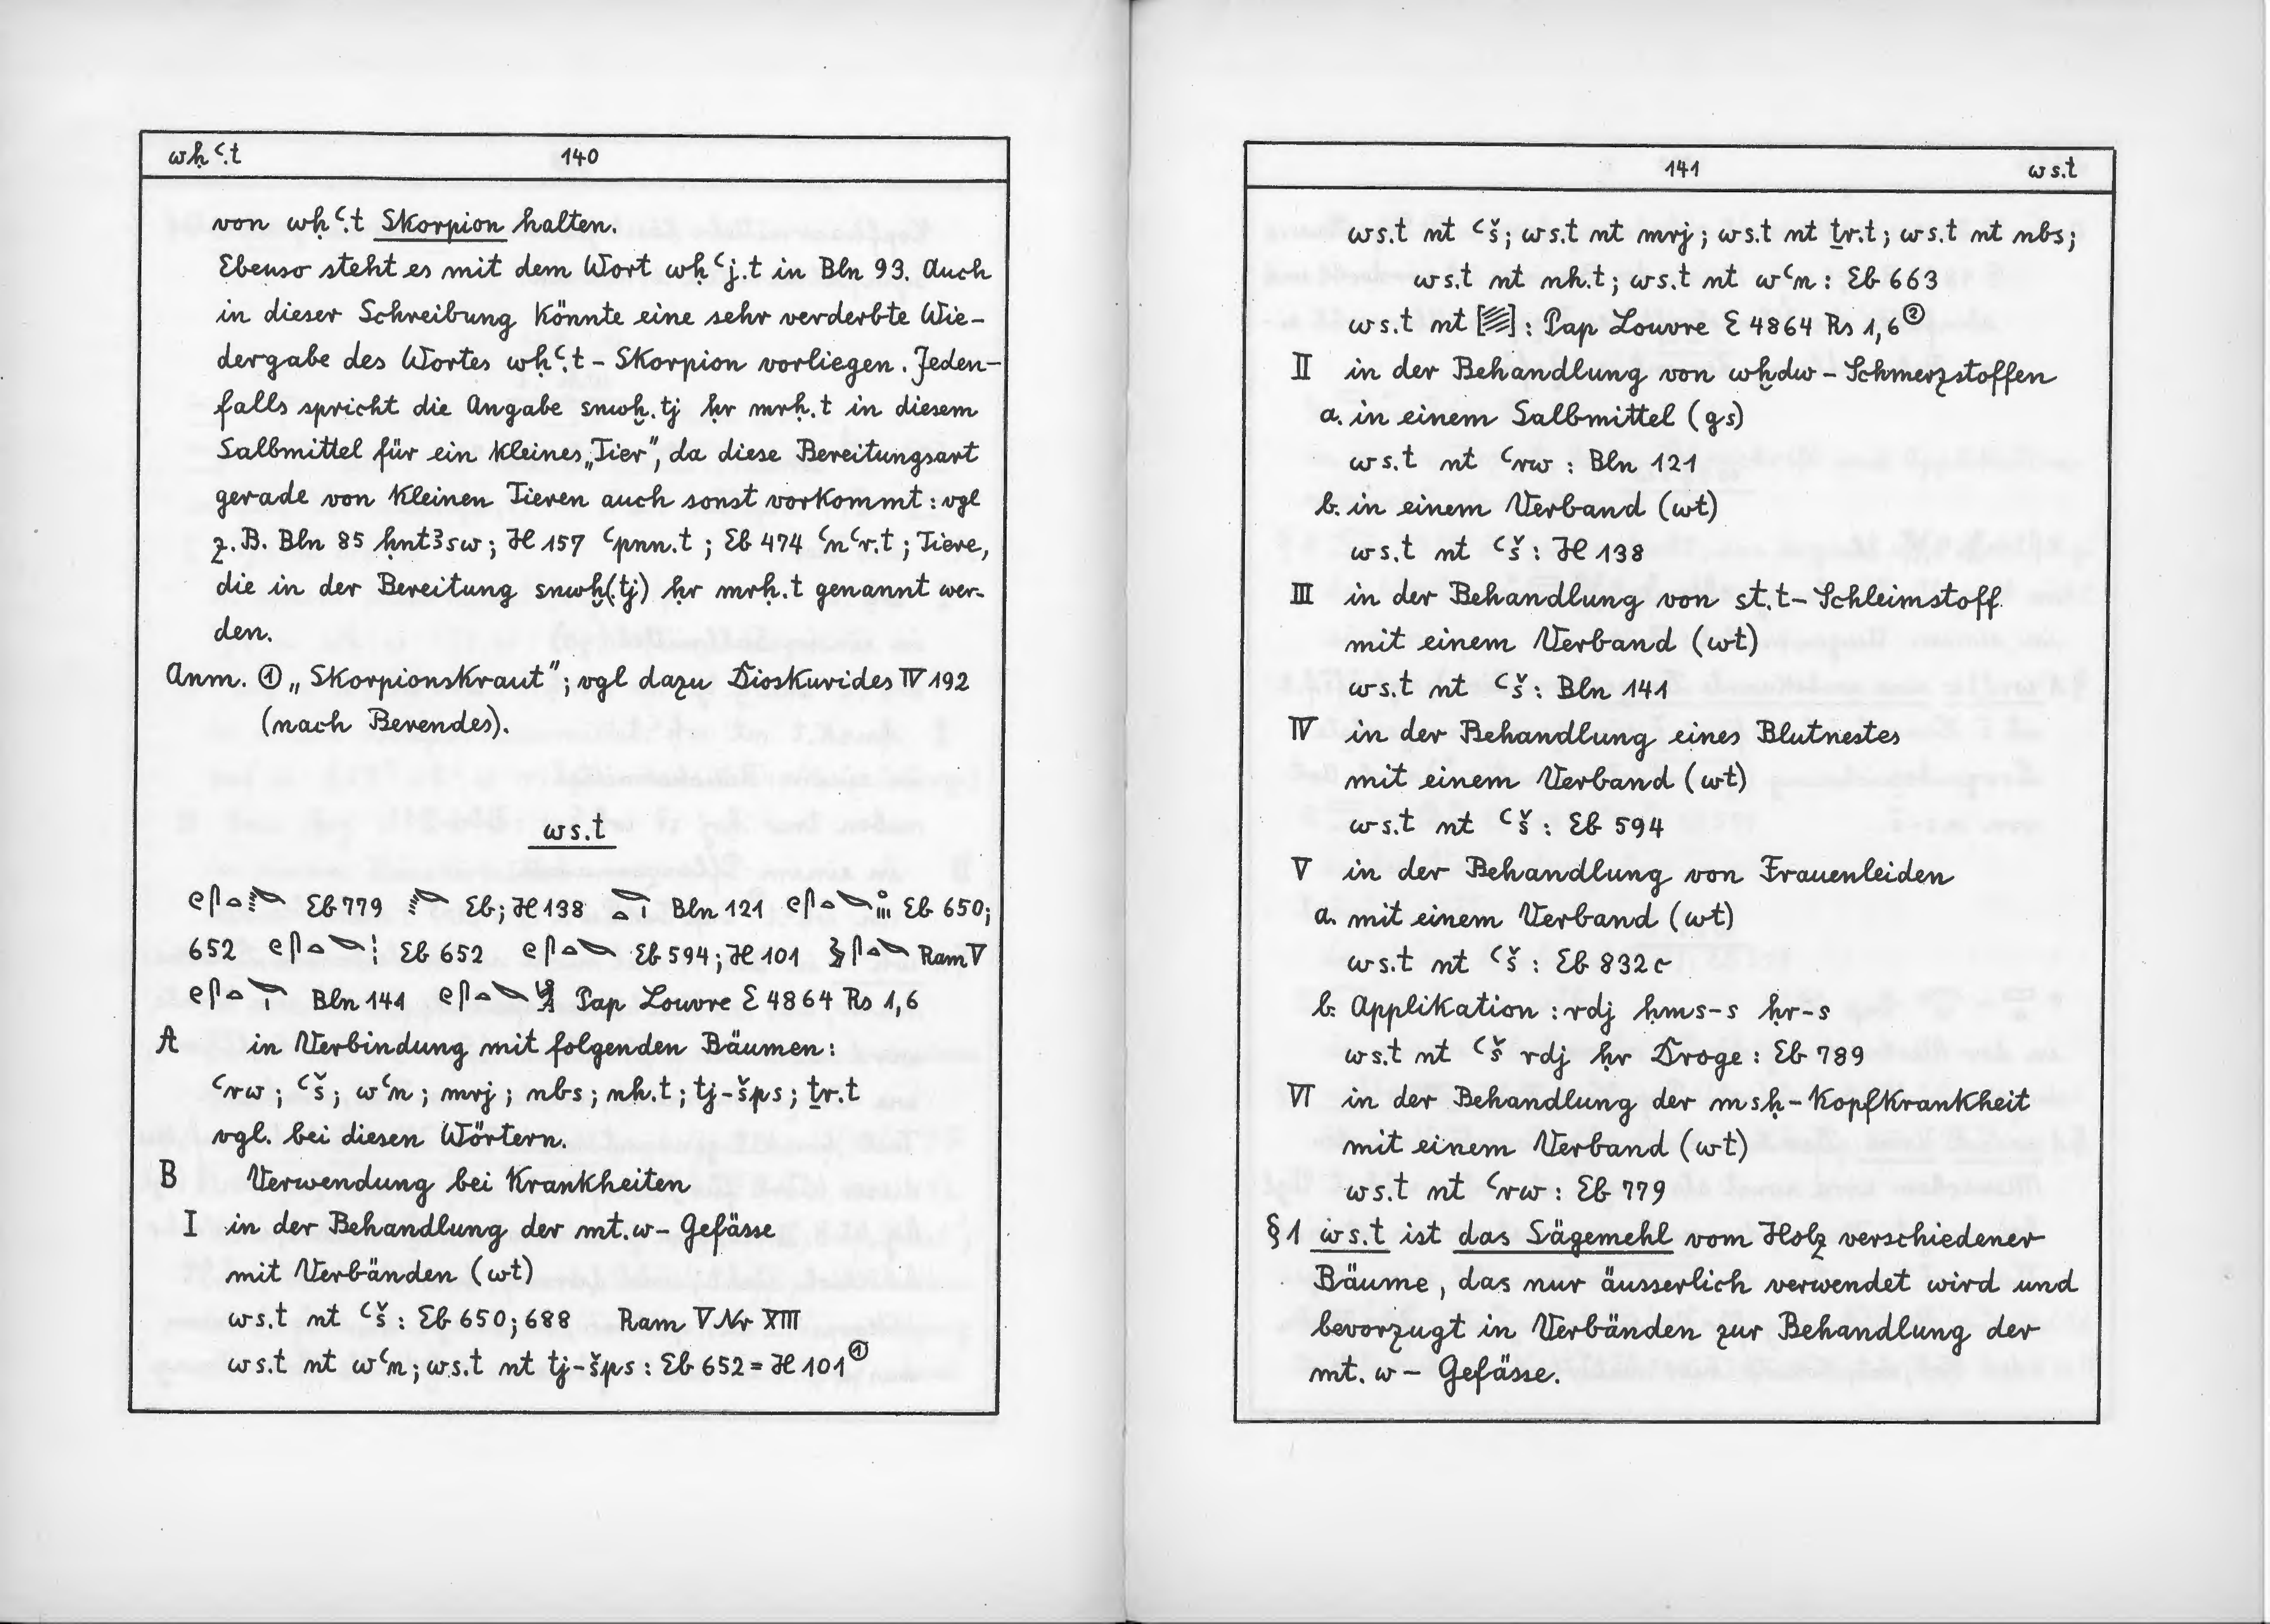 wḥꜥ.t 140
von wḥꜥ.t Skorpion halten.
Ebenso steht es mit dem Wort wḥꜥj.t in Bln 93. Auch
in dieser Schreibung könnte eine sehr verderbte Wie-
dergabe des Wortes wḥꜥ.t - Skorpion vorliegen. Jeden-
falls spricht die Angabe snwḫ.tj ḥr mrḥ.t in diesem
Salbmittel für ein kleines „Tier", da diese Bereitungsart
gerade von kleinen Tieren auch sonst vorkommt: vgl
z.B. Bln 85 ḥntꜣsw; H 157 ꜥpnn.t; Eb 474 ꜥnꜥr.t; Tiere,
die in der Bereitung snwḫ(.tj) ḥr mrḥ.t genannt wer-
den.
Anm. ① „Skorpionskraut"; vgl dazu Dioskurides IV 192
(nach Berendes).
ws.t
Eb 779 Eb; H 138 Bln 121 Eb 650;
652 Eb 652 Eb 594; H 101 Ram V
Bln 141 Pap Louvre E 4864 Rs 1,6
A in Verbindung mit folgenden Bäumen:
ꜥrw; ꜥš; wꜥn; mrj; nbs; nh.t; tj-šps; ṯr.t
vgl. bei diesen Wörtern.
B Verwendung bei Krankheiten
I in der Behandlung der mt.w - Gefässe
mit Verbänden (wt)
ws.t nt ꜥš: Eb 650; 688 Ram V Nr XIII
ws.t nt wꜥn; ws.t nt tj-šps: Eb 652 = H 101①
141 ws.t
ws.t nt ꜥš; ws.t nt mrj; ws.t nt ṯr.t; ws.t nt nbs;
ws.t nt nh.t; ws.t nt wꜥn: Eb 663
ws.t nt [▨]: Pap Louvre E 4864 Rs 1,6②
II in der Behandlung von wḫdw - Schmerzstoffen
a. in einem Salbmittel (gs)
ws.t nt ꜥrw: Bln 121
b. in einem Verband (wt)
ws.t nt ꜥš: H 138
III in der Behandlung von st.t - Schleimstoff
mit einem Verband (wt)
ws.t nt ꜥš: Bln 141
IV in der Behandlung eines Blutnestes
mit einem Verband (wt)
ws.t nt ꜥš: Eb 594
V in der Behandlung von Frauenleiden
a. mit einem Verband (wt)
ws.t nt ꜥš: Eb 832c
b. Applikation: rdj ḥms-s ḥr-s
ws.t nt ꜥš rdj ḥr Droge: Eb 789
VI in der Behandlung der msḥ - Kopfkrankheit
mit einem Verband (wt)
ws.t nt ꜥrw: Eb 779
§1 ws.t ist das Sägemehl vom Holz verschiedener
Bäume, das nur äusserlich verwendet wird und
bevorzugt in Verbänden zur Behandlung der
mt.w - Gefässe.